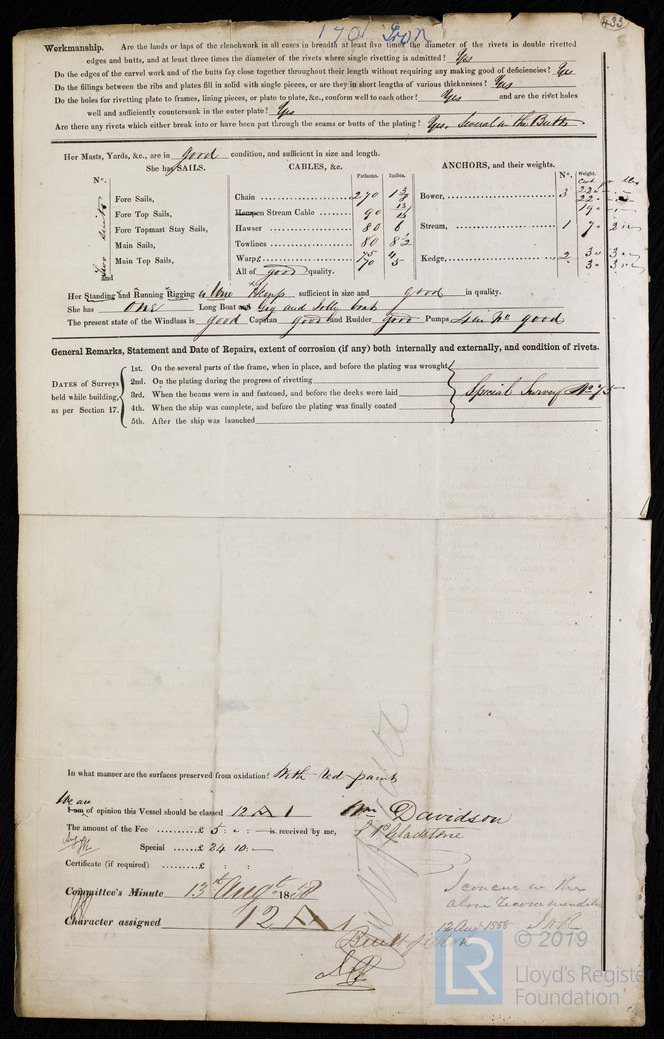 433
170 Iron
Workmanship. Are the lands or laps of the clenchwork in all cases in breadth at least five times the diameter of the rivets in double rivetted
edges and butts, and at least three times the diameter of the rivets where single rivetting is admitted? Yes
Do the edges of the carvel work and of the butts fay close together throughout their length without requiring any making good of deficiencies? Yes
Do the fillings between the ribs and plates fill in solid with single pieces, or are they in short lengths of various thicknesses? Yes
Do the holes for rivetting plate to frames, lining pieces, or plate to plate, &c., conform well to each other? Yes and are the rivet holes
well and sufficiently countersunk in the outer plate? Yes
Are there any rivets which either break into or have been put through the seams or butts of the plating? Yes, Several in the Butts
Her Masts, Yards, &c., are in good condition, and sufficient in size and length.
She has SAILS. CABLES, &c. ANCHORS, and their weights.
N°. Fathoms. Inches. N°. Weight.
Fore Sails, Chain 270 1 3/8 Bower, 3 22
Fore Top Sails, Hempen Stream Cable 90 22
Fore Topmast Stay Sails, Hawser 80 6 Stream, 1 7 2
Main Sails, Towlines 80 8½
Main Top Sails, Warps 75 4 Kedge, 2 3 3
70 5 3 3
two suits
and All of good quality.
Her Standing and Running Rigging is Wire & Hemp sufficient in size and good in quality.
She has one Long Boat and Gig and Jolly boat
The present state of the Windlass is good Capstan good and Rudder good Pumps good
General Remarks, Statement and Date of Repairs, extent of corrosion (if any) both internally and externally, and condition of rivets.
DATES of Surveys held while building, as per Section 17.
1st. On the several parts of the frame, when in place, and before the plating was wrought
2nd. On the plating during the progress of rivetting
3rd. When the beams were in and fastened, and before the decks were laid
4th. When the ship was complete, and before the plating was finally coated
5th. After the ship was launched
Special Survey No 75
In what manner are the surfaces preserved from oxidation? With red paint
We are
I am of opinion this Vessel should be classed 12 A 1 Wm Davidson
The amount of the Fee £ 5 : - : - is received by me, Gladstone
Special £ 24 10 : -
Certificate (if required) £ : :
Committee's Minute 13th Augt 1858
Character assigned 12 A 1
Built of Iron
I concur in the
above recommendation
12 Aug 1858
© 2019
LR
Lloyd's Register
Foundation